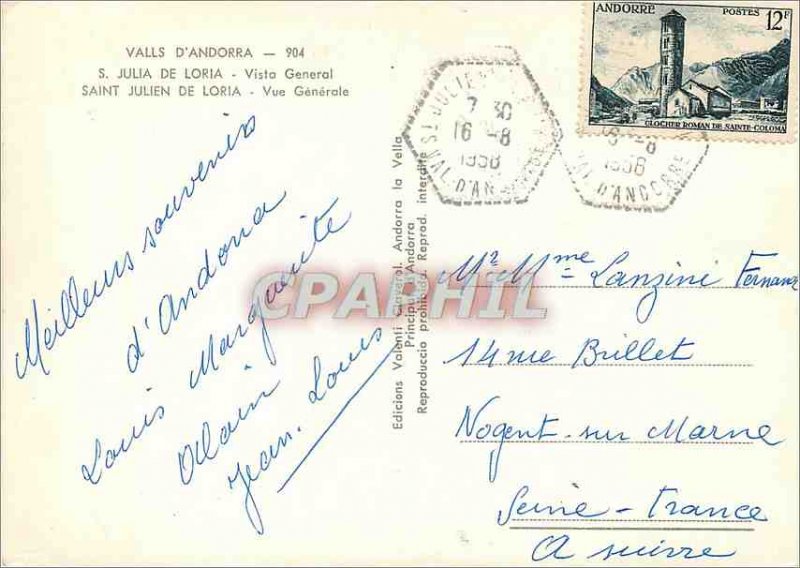 VALLS D'ANDORRA — 904
S. JULIA DE LORIA - Vista General
SAINT JULIEN DE LORIA - Vue Générale
ANDORRE
POSTES 12F
CLOCHER ROMAN DE SAINTE-COLOMA
ST JULIEN
7 30
16 -8
1958
VAL D'AN
16 -8
1958
VAL D'ANDORRE
Meilleurs souvenirs
d'Andorra
Louis Marguerite
Alain
Jean. Louis
Edicions Valenti Claverol. Andorra la Vella
Principut d'Andorra
Reproduccio prohibida. Reprod. interdite
CPARHIL
Mr Mme Lanzini Fernand
14 rue Brillet
Nogent-sur Marne
Seine - France
A suivre